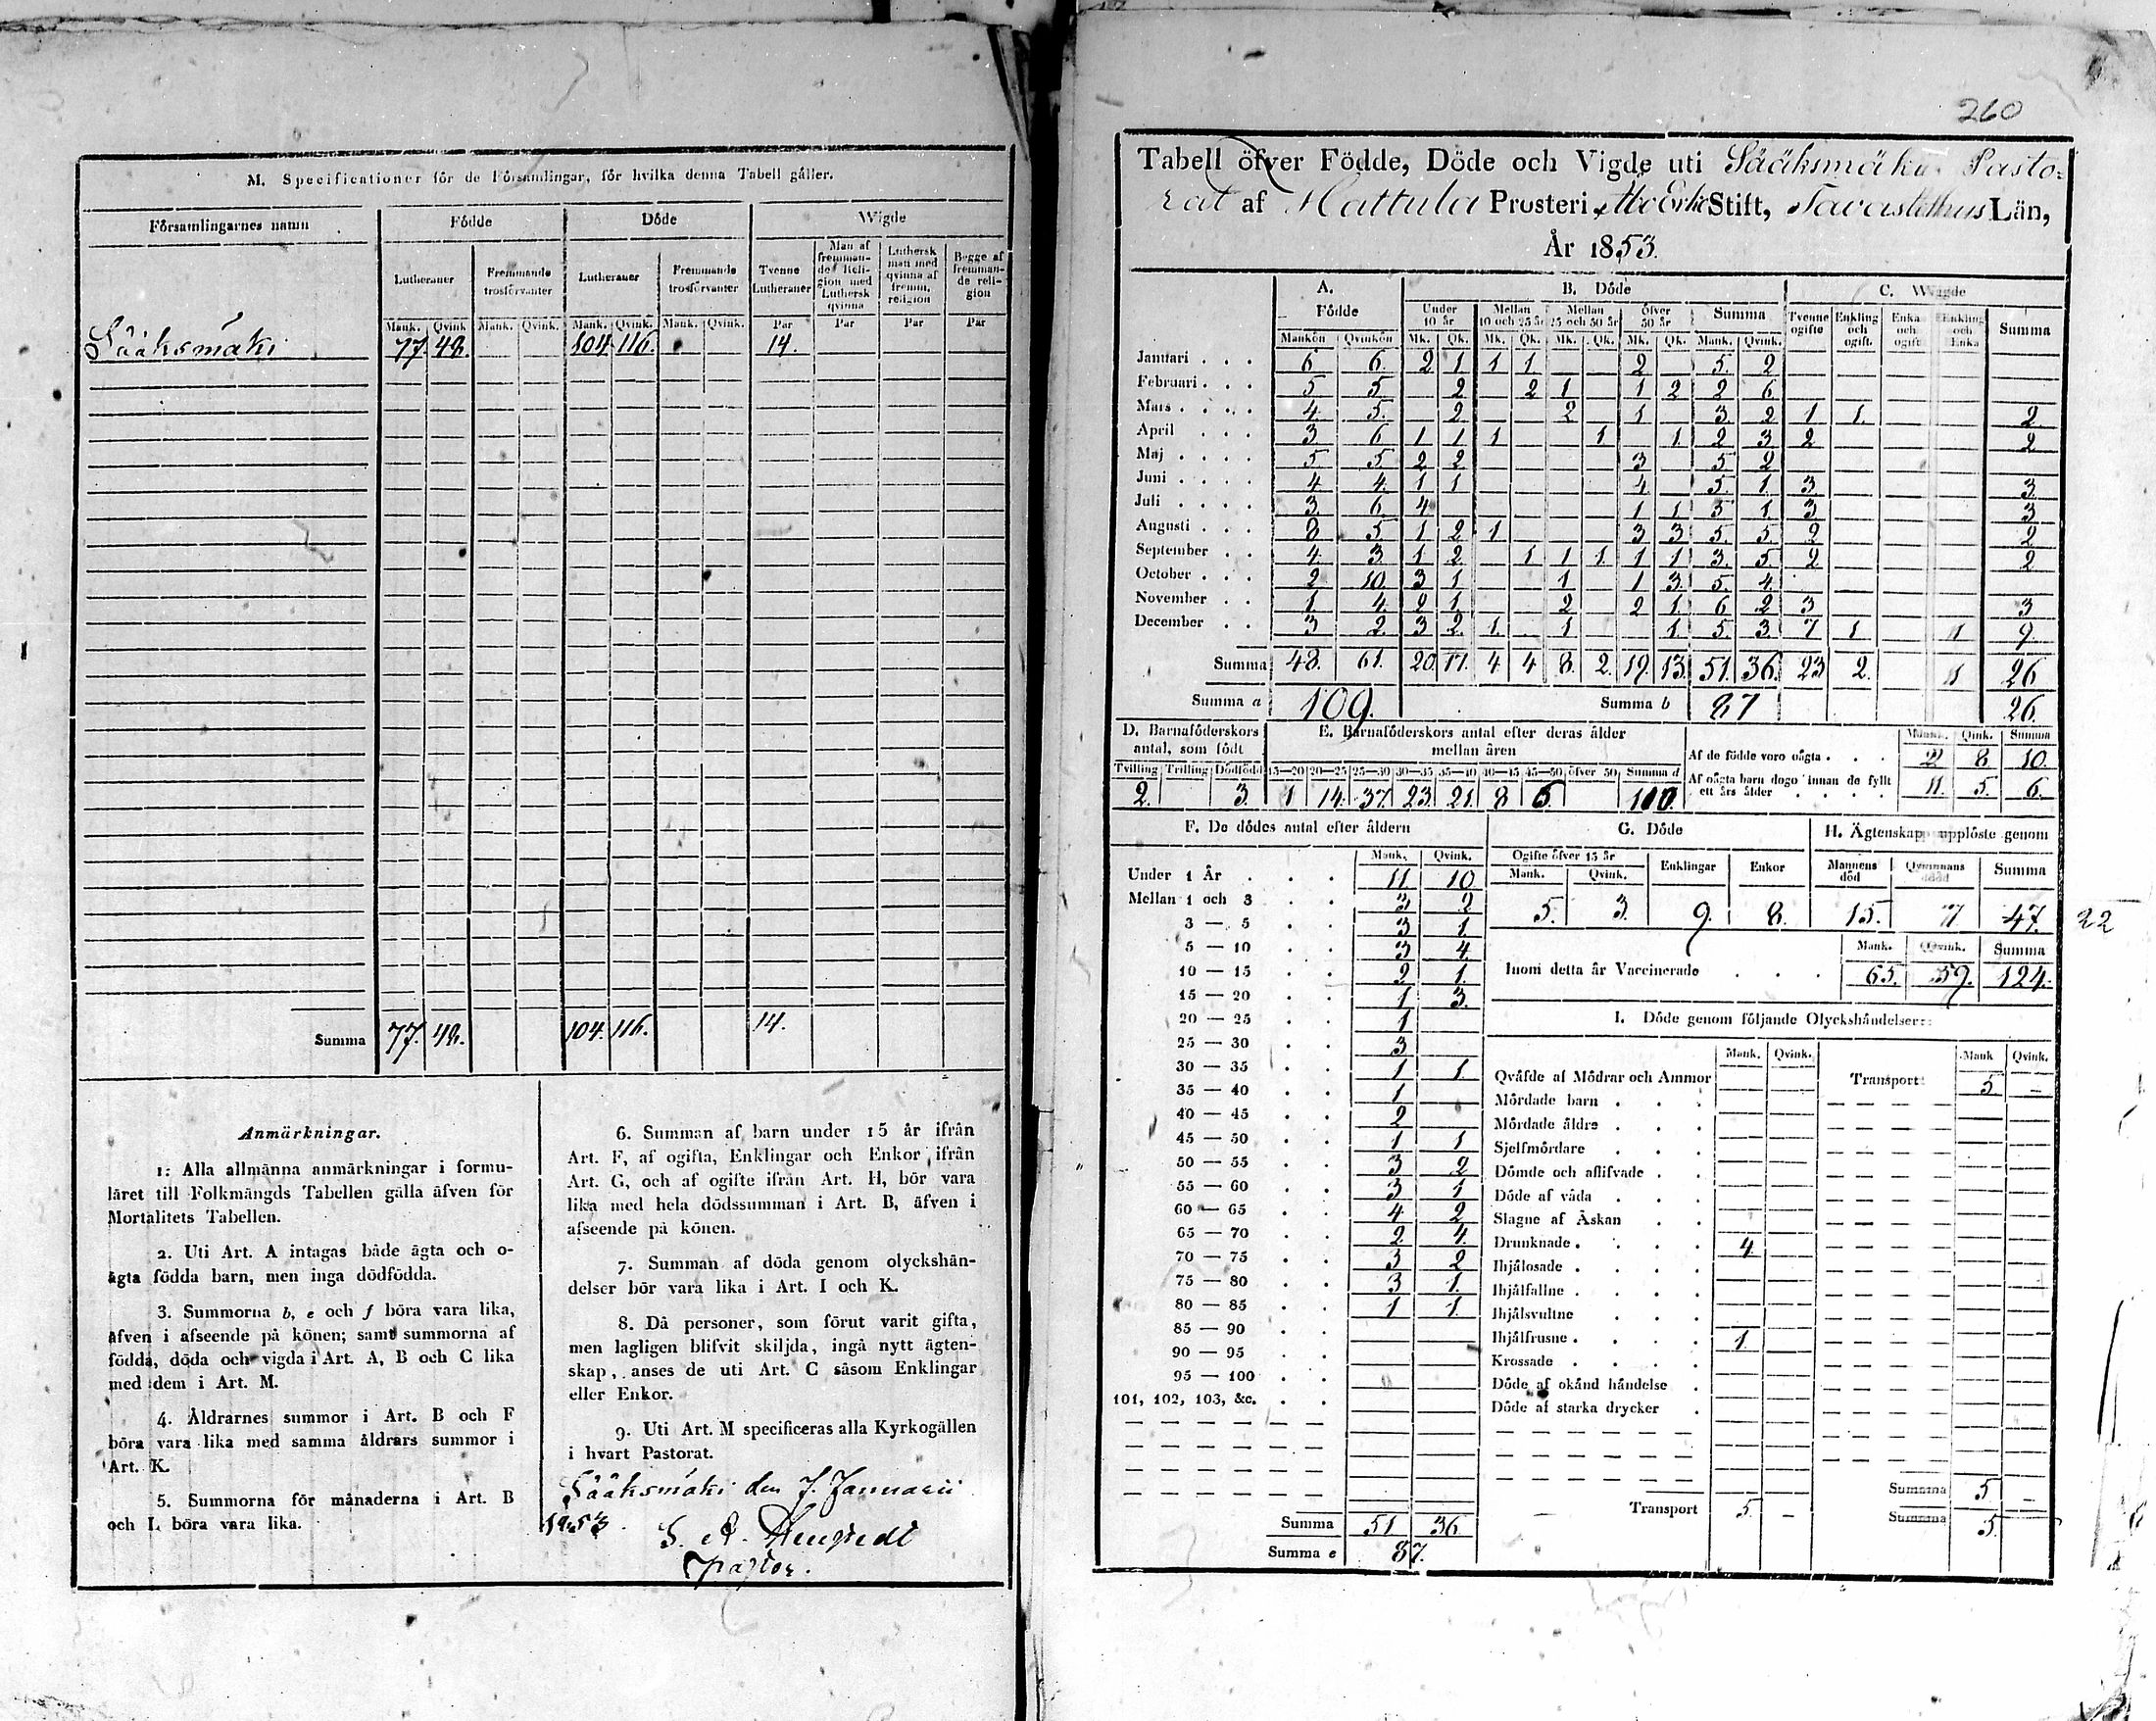 M. Specificationer för de Församlingar, för hvilka denna Tabell gäller.
Församlingarnes namn Födde Döde Wigde
Lutheraner Fremmande trosförvanter Lutheraner Fremmande trosförvanter Tvenne Lutheraner Man af fremmande Religion med Luthersk qvinna Luthersk man med qvinna af fremm. religion Begge af fremmande religion
Mank. Qvink. Mank. Qvink. Mank. Qvink. Mank. Qvink. Par Par Par Par
Sääksmäki 77. 42. 104. 116. 14.
Summa 77. 42. 104. 116. 14.
Anmärkningar.
1: Alla allmänna anmärkningar i formu-
läret till Folkmängds Tabellen gälla äfven för
Mortalitets Tabellen.
2. Uti Art. A intagas både ägta och o-
ägta födda barn, men inga dödfödda.
3. Summorna b, e och f böra vara lika,
äfven i afseende på könen; samt summorna af
födda, döda och vigda i Art. A, B och C lika
med dem i Art. M.
4. Åldrarnes summor i Art. B och F
böra vara lika med samma åldrars summor i
Art. K.
5. Summorna för månaderna i Art. B
och L böra vara lika.
6. Summan af barn under 15 år ifrån
Art. F, af ogifta, Enklingar och Enkor ifrån
Art. G, och af ogifte ifrån Art. H, bör vara
lika med hela dödssumman i Art. B, äfven i
afseende på könen.
7. Summan af döda genom olyckshän-
delser bör vara lika i Art. I och K.
8. Då personer, som förut varit gifta,
men lagligen blifvit skiljda, ingå nytt ägten-
skap, anses de uti Art. C såsom Enklingar
eller Enkor.
9. Uti Art. M specificeras alla Kyrkogällen
i hvart Pastorat.
Sääksmäki den 7. Januarii
1853.
Pastor.
260
Tabell öfver Födde, Döde och Vigde uti Sääksmäki Pasto=
rat af Hattula Prosteri, Åbo Erke Stift, Tavastehus Län,
År 1853.
A. Födde B. Döde C. Wigde
Under 10 år Mellan 10 och 25 år Mellan 25 och 50 år öfver 50 år Summa Tvenne ogifte Enkling och ogift. Enka och ogift Enkling och Enka Summa
Mankön Qvinkön Mk. Qk. Mk. Qk. Mk. Qk. Mk. Qk. Mank. Qvink.
Januari 6 6. 2 1 1 1 2 5. 2
Februari 5 5 2 2 1 1 2 2 6
Mars 4 5. 2 2 1 3. 2 1 1. 2
April 3 6 1 1 1 1 1. 2 3 2 2
Maj 5 5 2 2 3 5 2
Juni 4 4. 1 1 4 5. 1. 3. 3.
Juli 3. 6. 4 1 1 5 1. 3 3
Augusti 8 5 1 2 1 3 3 5. 5. 2 2
September 4. 3 1 2 1 1 1. 1 1 3. 5. 2 2
October 2 10. 3 1 1 1 3. 5. 4.
November 1 4. 2 1. 2 2 1. 6 2 3 3
December 3 2. 3 2. 1. 1 1. 5. 3. 7 1 1 9.
Summa 48. 61. 20. 17. 4 4 8. 2. 19. 13. 51. 36. 23 2. 1 26
Summa a 109. Summa b 87 26.
D. Barnaföderskors antal, som födt E. Barnaföderskors antal efter deras ålder mellan åren
Tvilling Trilling Dödfödd 15—20 20—25 25—30 30—35 35—40 40—45 45—50 öfver 50 Summa d
2. 3. 1 14. 37. 23 21. 8 6. 110.
Mank. Qink. Summa
Af de födde voro oägta 2 8. 10.
Af oägta barn dogo innan de fyllt ett års ålder 11. 5. 6.
F. De dödes antal efter åldern
Mank. Qvink.
Under 1 År 11. 10
Mellan 1 och 3 3 2
3 — 5 3 1.
5 — 10 3 4.
10 — 15 2 1.
15 — 20 1 3.
20 — 25 1
25 — 30 3
30 — 35 1 1.
35 — 40 1
40 — 45 2
45 — 50 1 1
50 — 55 3 2
55 — 60 3 1
60 — 65 4 2
65 — 70 2 4.
70 — 75 3 2
75 — 80 3 1.
80 — 85 1 1.
85 — 90
90 — 95
95 — 100
101, 102, 103, &c.
Summa 51 36
Summa e 87.
G. Döde
Ogifte öfver 15 år Enklingar Enkor
Mank. Qvink.
5. 3. 9. 8.
H. Ägtenskap upplöste genom
Mannens död Qvinnans död Summa
15. 7 47. 22
Mank. Qvink. Summa
Inom detta år Vaccinerade 65. 59. 124.
I. Döde genom följande Olyckshändelser:
Mank. Qvink. Mank Qvink.
Qväfde af Mödrar och Ammor Transport 5. -
Mördade barn
Mördade äldre
Sjelfmördare
Dömde och aflifvade
Döde af våda
Slagne af Åskan
Drunknade 4
Ihjälosade
Ihjälfallne
Ihjälsvultne
Ihjälfrusne 1.
Krossade
Döde af okänd händelse
Döde af starka drycker
Summa 5 -
Transport 5. - Summa 5.